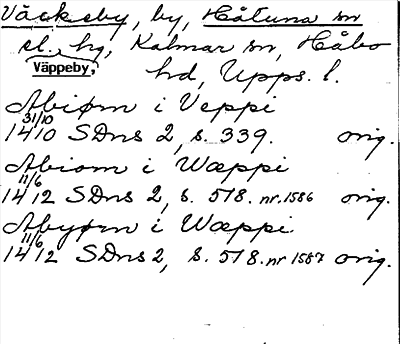 Väckeby, by, Håtuna sn
el. hg, Kalmar sn, Håbo
Väppeby,
hd, Upps. l.
Abiørn i Veppi
31/10
1410 SDns 2, s. 339. orig.
Abiorn i Wæppi
11/6
1412 SDns 2, s. 518. nr. 1586 orig.
Abyørn i Wæppi
11/6
1412 SDns 2, s. 518. nr 1587 orig.